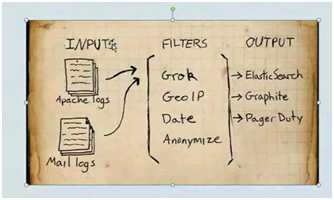 INPUTS
FILTERS
OUTPUT
Apache logs
Mail logs
Grok
GeoIP
Date
Anonymize
ElasticSearch
Graphite
PagerDuty